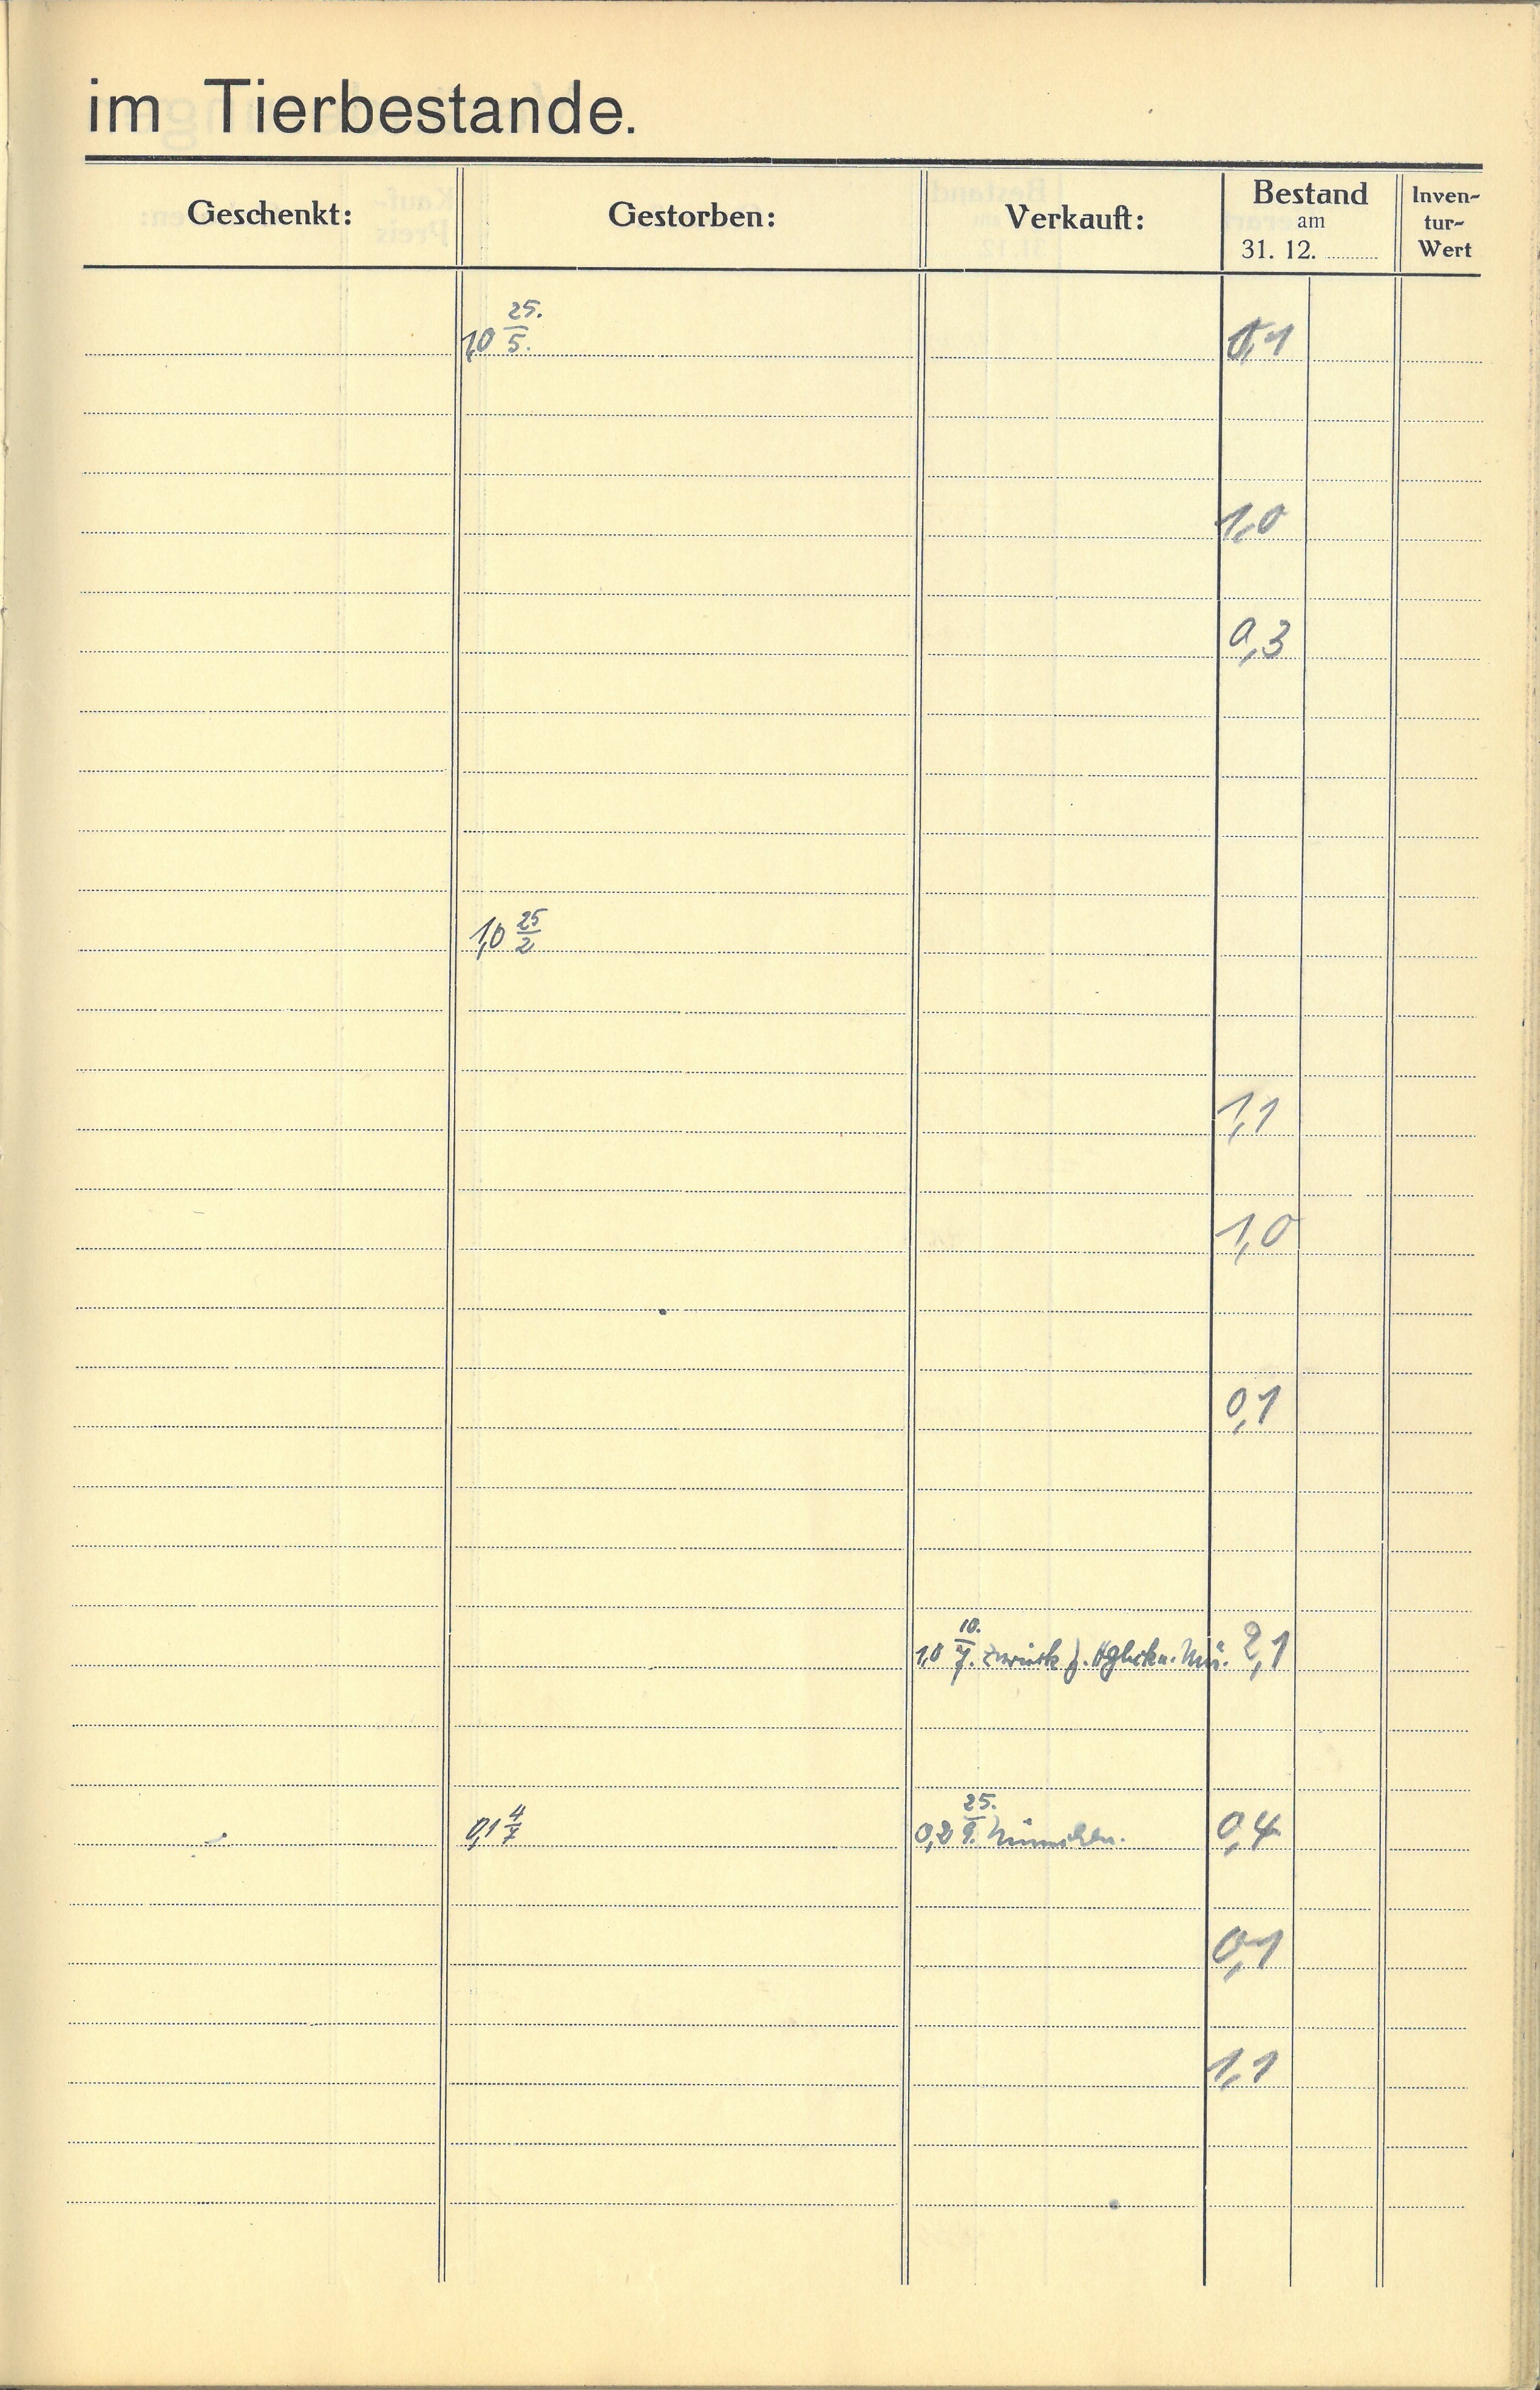 im Tierbestande.
Geschenkt: Gestorben: Verkauft: Bestand am 31. 12. Inven-tur-Wert
1,0 25./5. 0,1
1,0
0,3
1,0 25/2
1,1
1,0
0,1
1,0 10./7. zurück 2,1
0,1 4/7 0,2 25./9. München. 0,4
0,1
1,1